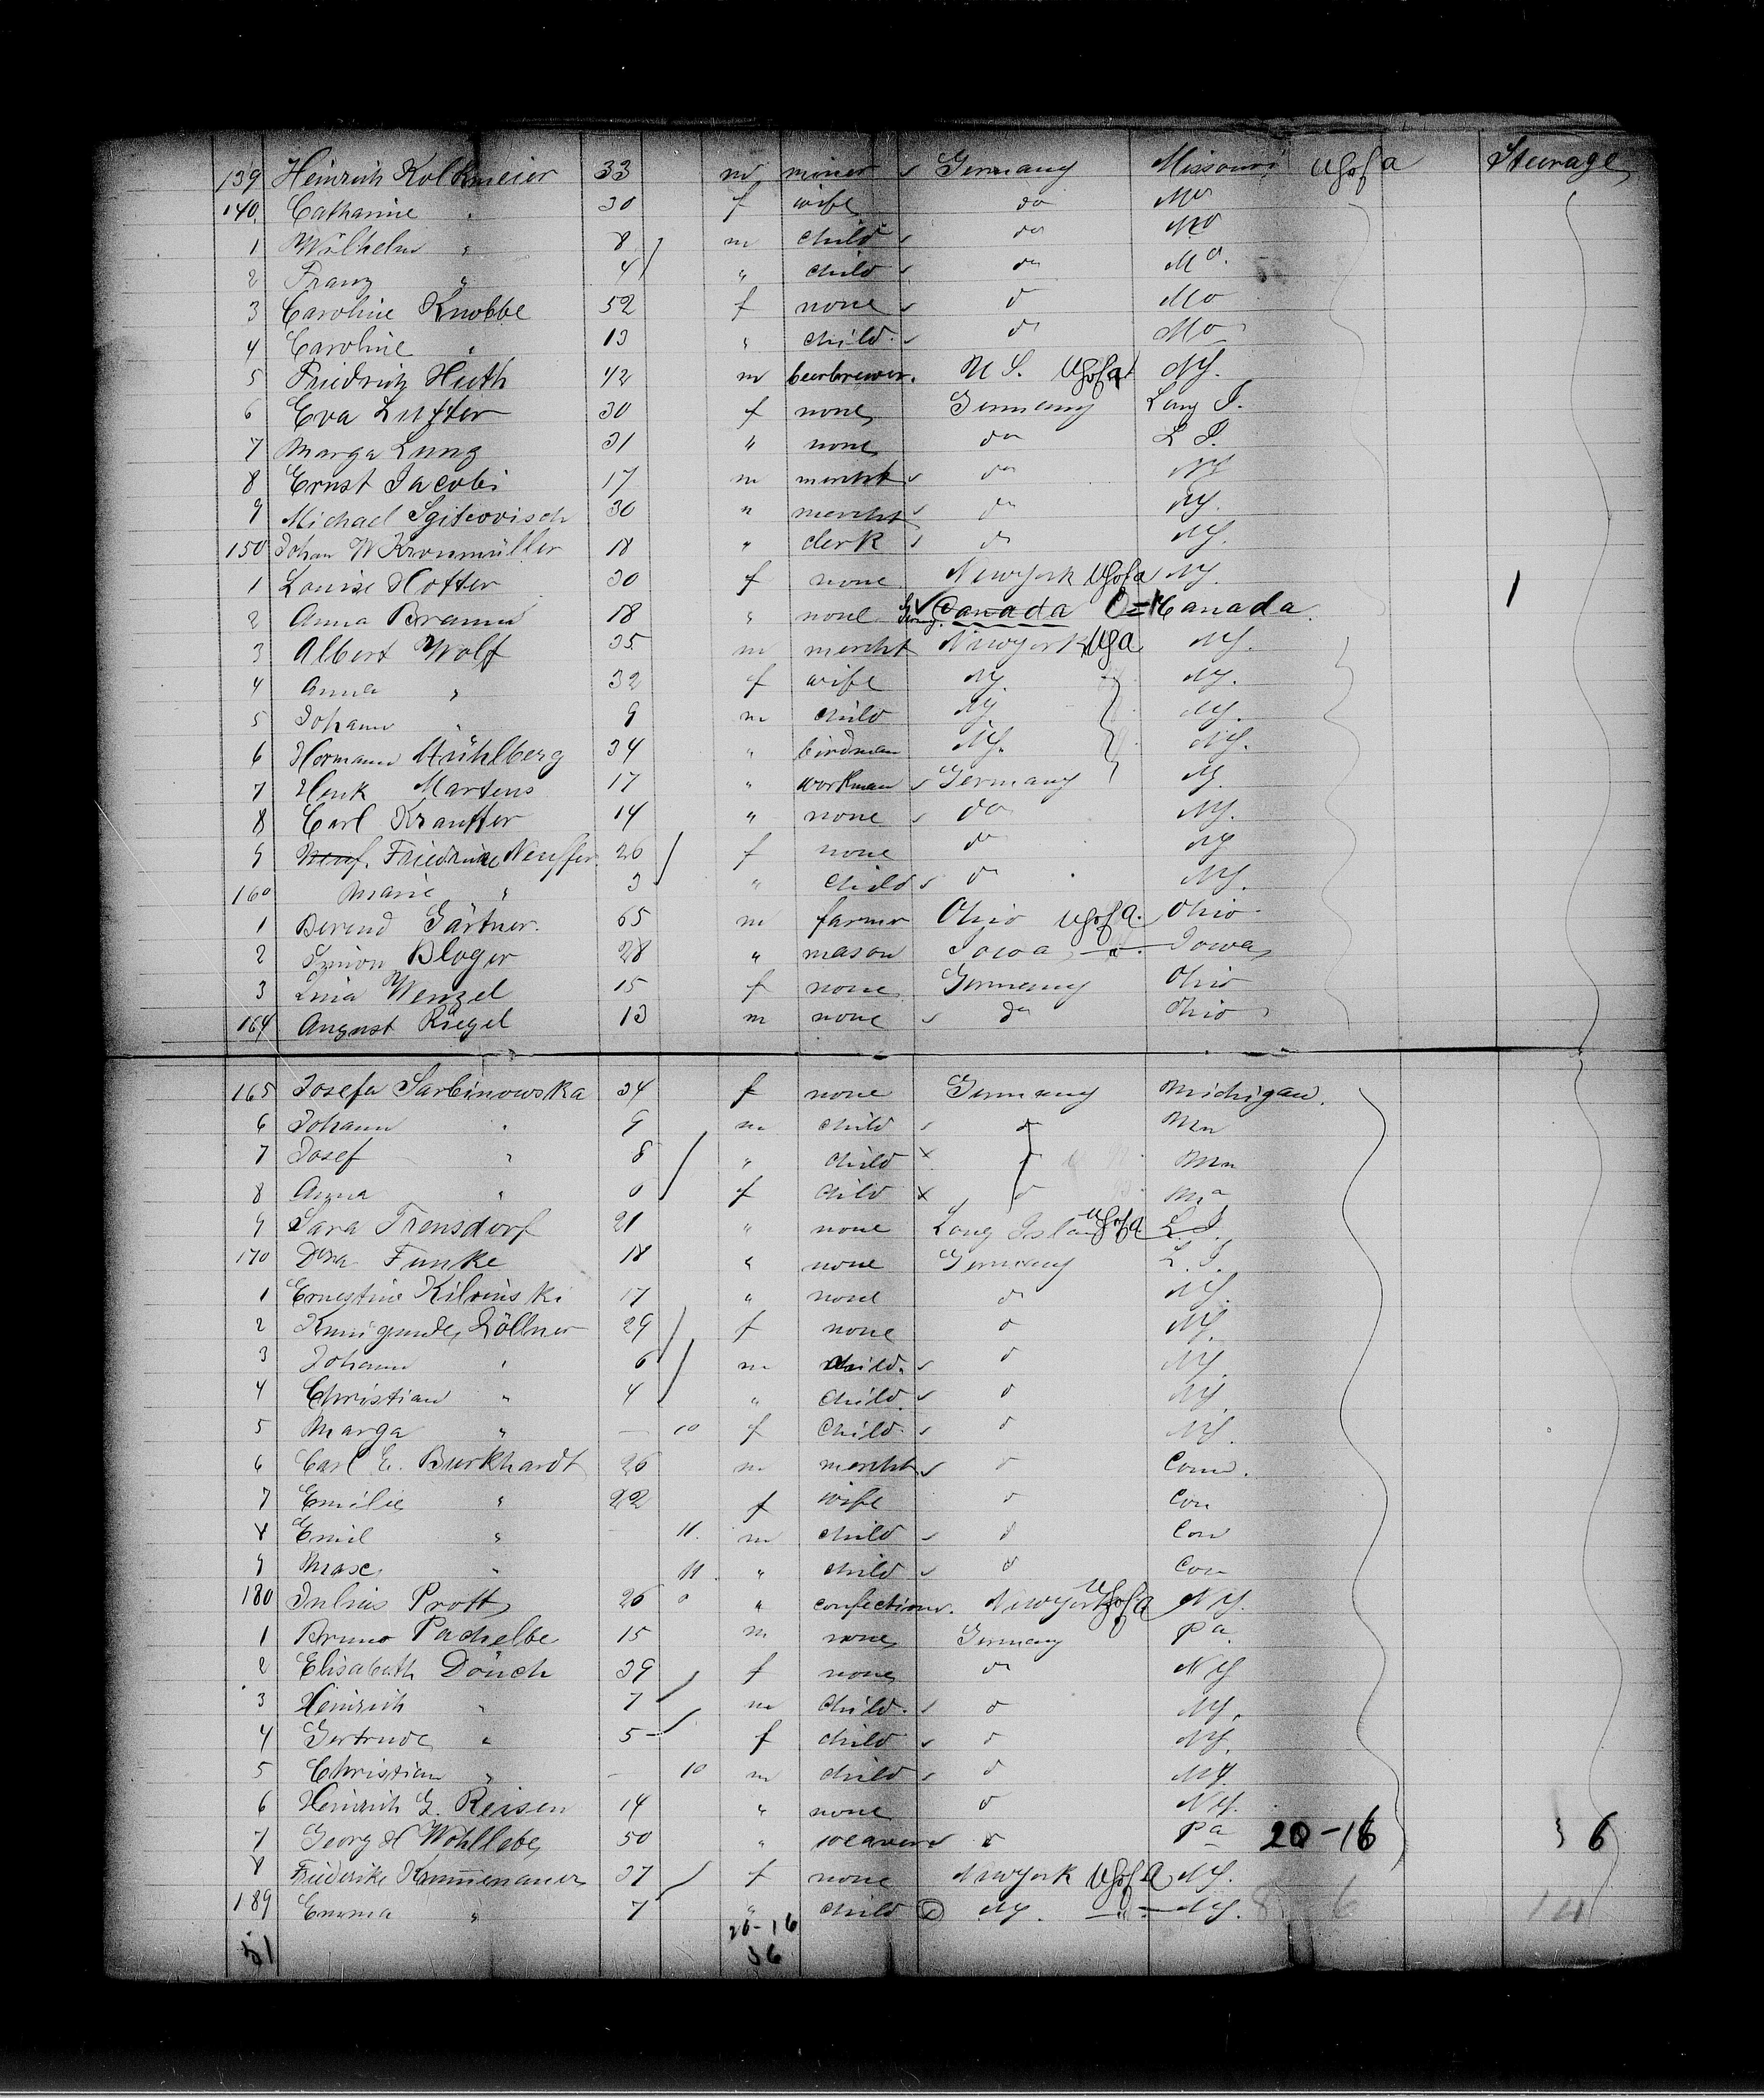 139 Heinrich Kolkmeier 33 m miner Germany Missouri U S of A Steerage
140 Catharine " 30 f wife do Mo
1 Wilhelm " 8 m child do Mo
2 Franz " 4 " child do Mo.
3 Caroline Knobbe 52 f none do Mo
4 Caroline " 13 " child. do Mo
5 Friedrich Huth 42 m beerbrewer. U S. U S of A NY.
6 Eva Lutter 30 f none Germany Long I.
7 Marga Lung 31 " none do L I.
8 Ernst Jacobi 17 m mercht do NY
9 Michael 30 " mercht do NY.
150 Johan W Kronmüller 18 " clerk do NY.
1 Louise Hotter 30 f none Newyork U S of A NY.
2 Anna Braun 18 " none Germ. Canada Canada. 1
3 Albert Wolf 35 m mercht Newyork U S A NY.
4 Anna " 32 f wife NY. NY.
5 Johann " 9 m child NY. NY.
6 Hermann Mühlberg 34 " birdman NY. NY.
7 Henk Martens 17 " workman Germany NY.
8 Carl Krautter 14 " none do NY.
9 Neuf. Friedrike Neuffer. 26 f none do NY
160 Marie " 3 " child do NY.
1 Berend Gärtner. 65 m farmer Ohio U S of A. Ohio
2 Simon Bloger 28 " mason Iowa " Iowa
3 Lina Wenzel 15 f none Germany Ohio
164 August Riegel 13 m none do Ohio
165 Josefa Sarbinowska 34 f none Germany Michigan.
6 Johann " 9 m child do Mn
7 Josef " 8 " child do Mn
8 Anna " 6 f child do Ma
9 Sara Trensdorf 21 " none Long Island U S of A L. I.
170 Dora Funke 18 " none Germany L. I.
1 Ernestine Kilvinski 17 " none do NY.
2 Kunigunde Zöllner 29 f none do NY.
3 Johann " 6 m child. do NY.
4 Christian " 4 " child. do NY.
5 Marga " — 10 f child. do NY.
6 Carl E. Burkhardt 26 m mercht do Conn.
7 Emilie " 22 f wife do Con
8 Emil " 11. m child do Con
9 Max " 11. " child do Con
180 Julius Prott 26 " confectioner. Newyork U S of A NY.
1 Bruno Pachelbe 15 m none Germany Pa.
2 Elisabeth Dönch 39 f none do NY
3 Heinrich " 7 m child. do NY.
4 Gertrude " 5 f child do NY.
5 Christian " — 10 m child do NY.
6 Heinrich G. Reisen 14 " none do NY.
7 Georg H Wohllebe 50 " weaver do Pa 20-16 36
8 Friederike 37 f none Newyork U S of A NY.
189 Emma " 7 " child NY. " NY. 8 6 14
51 20-16
36